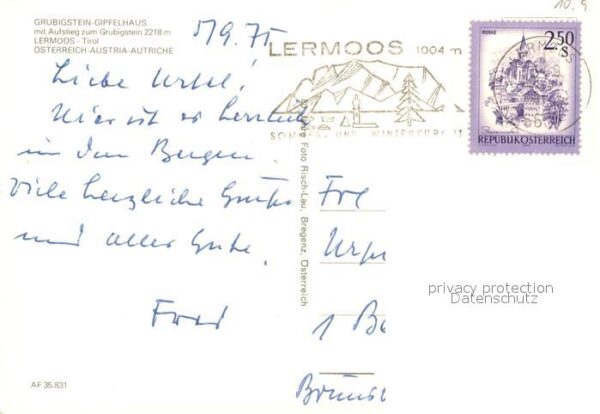 GRUBIGSTEIN-GIPFELHAUS
mit Aufstieg zum Grubigstein 2218 m
LERMOOS - Tirol
ÖSTERREICH-AUSTRIA-AUTRICHE
5/9.75
10.9.
LERMOOS 1004 m
SOMMER- UND WINTERKURORT
MURAU
2.50
S
REPUBLIK ÖSTERREICH
Liebe Ursel!
Hier ist es herrlich
in den Bergen.
Viele herzliche Grüße
und alles Gute.
Fred
Foto Risch-Lau, Bregenz, Österreich
Fre
1 Be
privacy protection
Datenschutz
AF 35.831